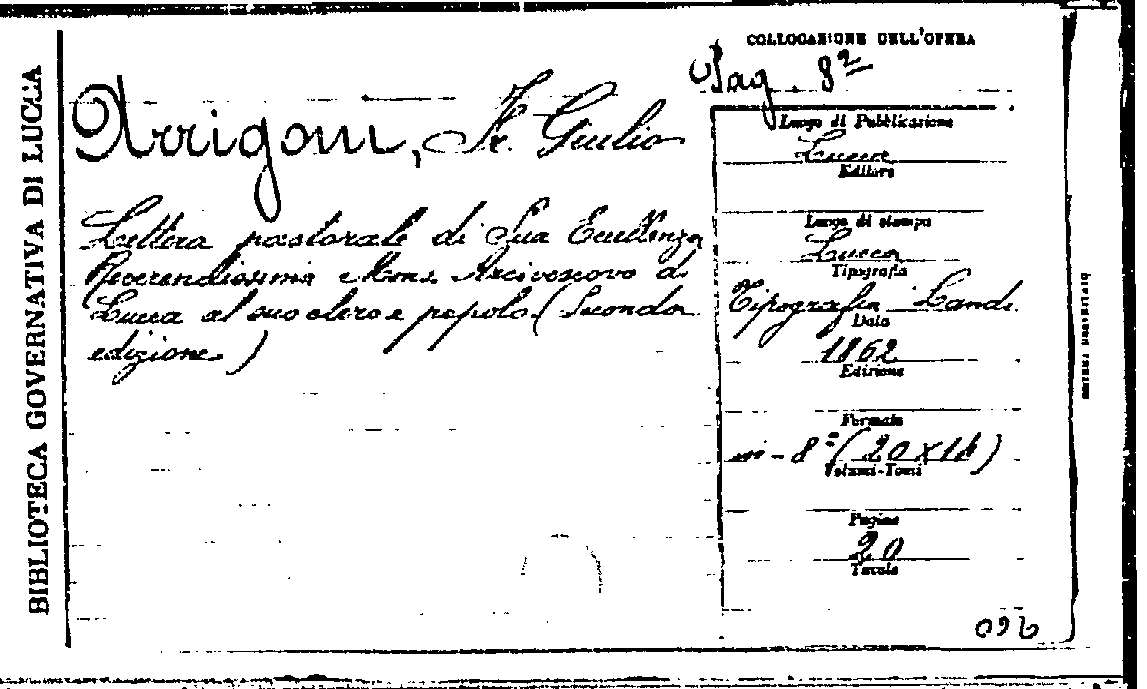 BIBLIOTECA GOVERNATIVA DI LUCCA
COLLOCAZIONE DELL'OPERA
Pag. 8
Arrigoni, Fr. Giulio
Lettera pastorale di Sua Eccellenza
Reverendissima Mons. Arcivescovo di
Lucca al suo clero e popolo (Seconda
edizione)
Luogo di Pubblicazione
Lucca
Editore
Luogo di stampa
Lucca
Tipografia
Tipografia Landi
Data
1862
Edizione
Formato
in-8° (20 x 14)
Volumi-Tomi
Pagine
20
Tavole